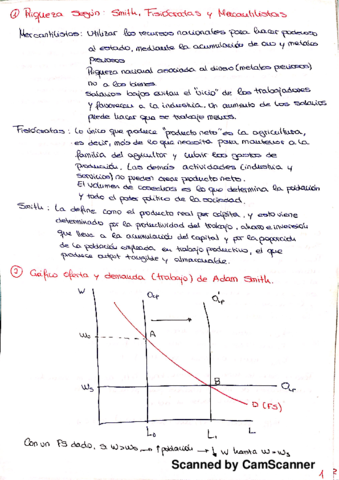 ① Riqueza según: Smith, Fisiócratas y Mercantilistas
Mercantilistas: Utilizar los recursos nacionales para hacer poderoso
al estado, mediante la acumulación de oro y metales
preciosos
Riqueza nacional asociada al dinero (metales preciosos)
no a los bienes
Salarios bajos evitan el "vicio" de los trabajadores
y favorecen a la industria. Un aumento de los salarios
puede hacer que se trabaje menos.
Fisiócratas: Lo único que produce "producto neto" es la agricultura,
es decir, más de lo que necesita para mantener a la
familia del agricultor y cubrir los gastos de
producción. Las demás actividades (industria y
servicios) no pueden crear producto neto.
El volumen de cosechas es lo que determina la población
y todo el poder político de la sociedad.
Smith: La define como el producto real per cápita, y esto viene
determinado por la productividad del trabajo, ahorro e inversión
que lleva a la acumulación del capital y por la proporción
de la población empleada en trabajo productivo, el que
produce output tangible y almacenable.
② Gráfica oferta y demanda (trabajo) de Adam Smith.
W
W₀
A
B
D (FS)
L₀
L₁
L
Con un FS dado, si W>W₀ → ↑población → ↓ W hasta W=W₃
Scanned by CamScanner
1